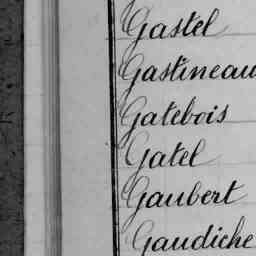 Gastel
Gastineau
Gatebois
Gatel
Gaubert
Gaudiche